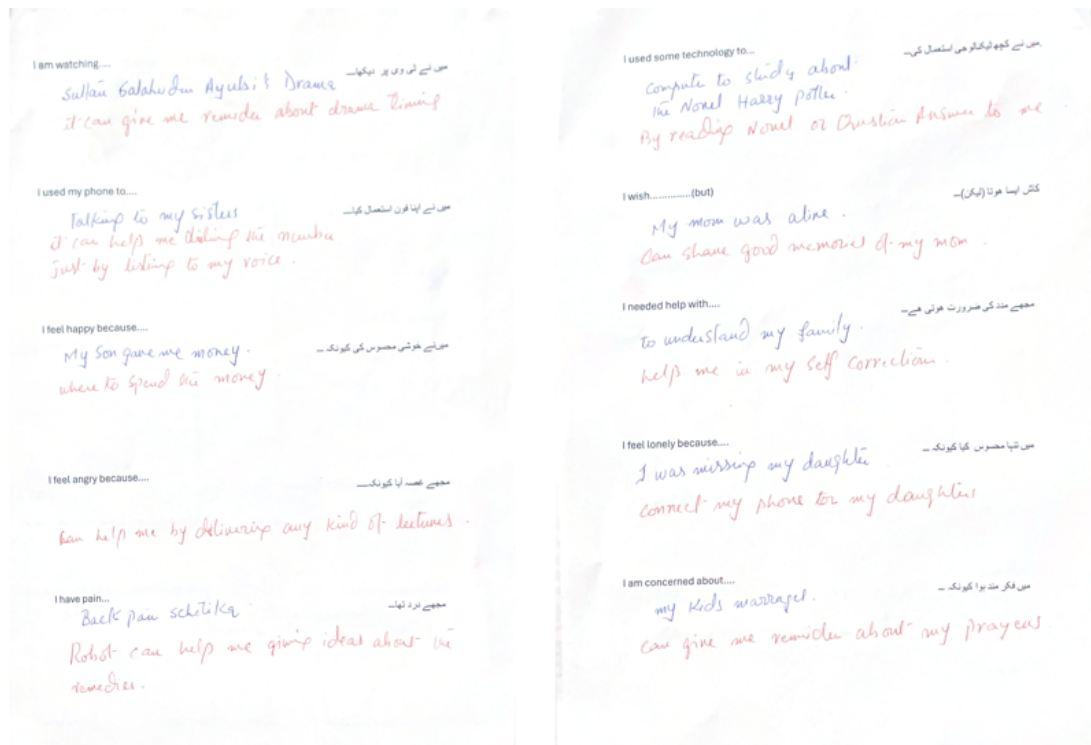 I am watching....
میں نے ٹی وی پر دیکھا...
Sultan Salahudin Ayubi's Drama
it can give me remider about drama timing
I used my phone to....
میں نے اپنا فون استعمال کیا...
Talking to my sisters
it can help me dialing the number
just by listing to my voice.
I feel happy because....
میں نے خوشی محسوس کی کیونکہ ...
My Son gave me money.
where to spend the money
I feel angry because....
مجھے غصہ آیا کیونکہ....
can help me by delivering any kind of lectures.
I have pain...
مجھے درد تھا...
Back pain schitika
Robot can help me giving ideas about the
remedies.
I used some technology to...
میں نے کچھ ٹیکنالوجی استعمال کی...
Compute to study about
the Novel Harry Potter.
By reading Novel or Question Answer to me
I wish..............(but)
کاش ایسا ہوتا (لیکن)...
My mom was alive.
Can share good memories of my mom.
I needed help with....
مجھے مدد کی ضرورت ہوتی ھے...
to understand my family.
help me in my self correction.
I feel lonely because....
میں تنہا محسوس کیا کیونکہ ...
I was missing my daughter
connect my phone tor my daughters
I am concerned about....
میں فکر مند ہوا کیونکہ ...
my kids marrages.
can give me remider about my prayers.